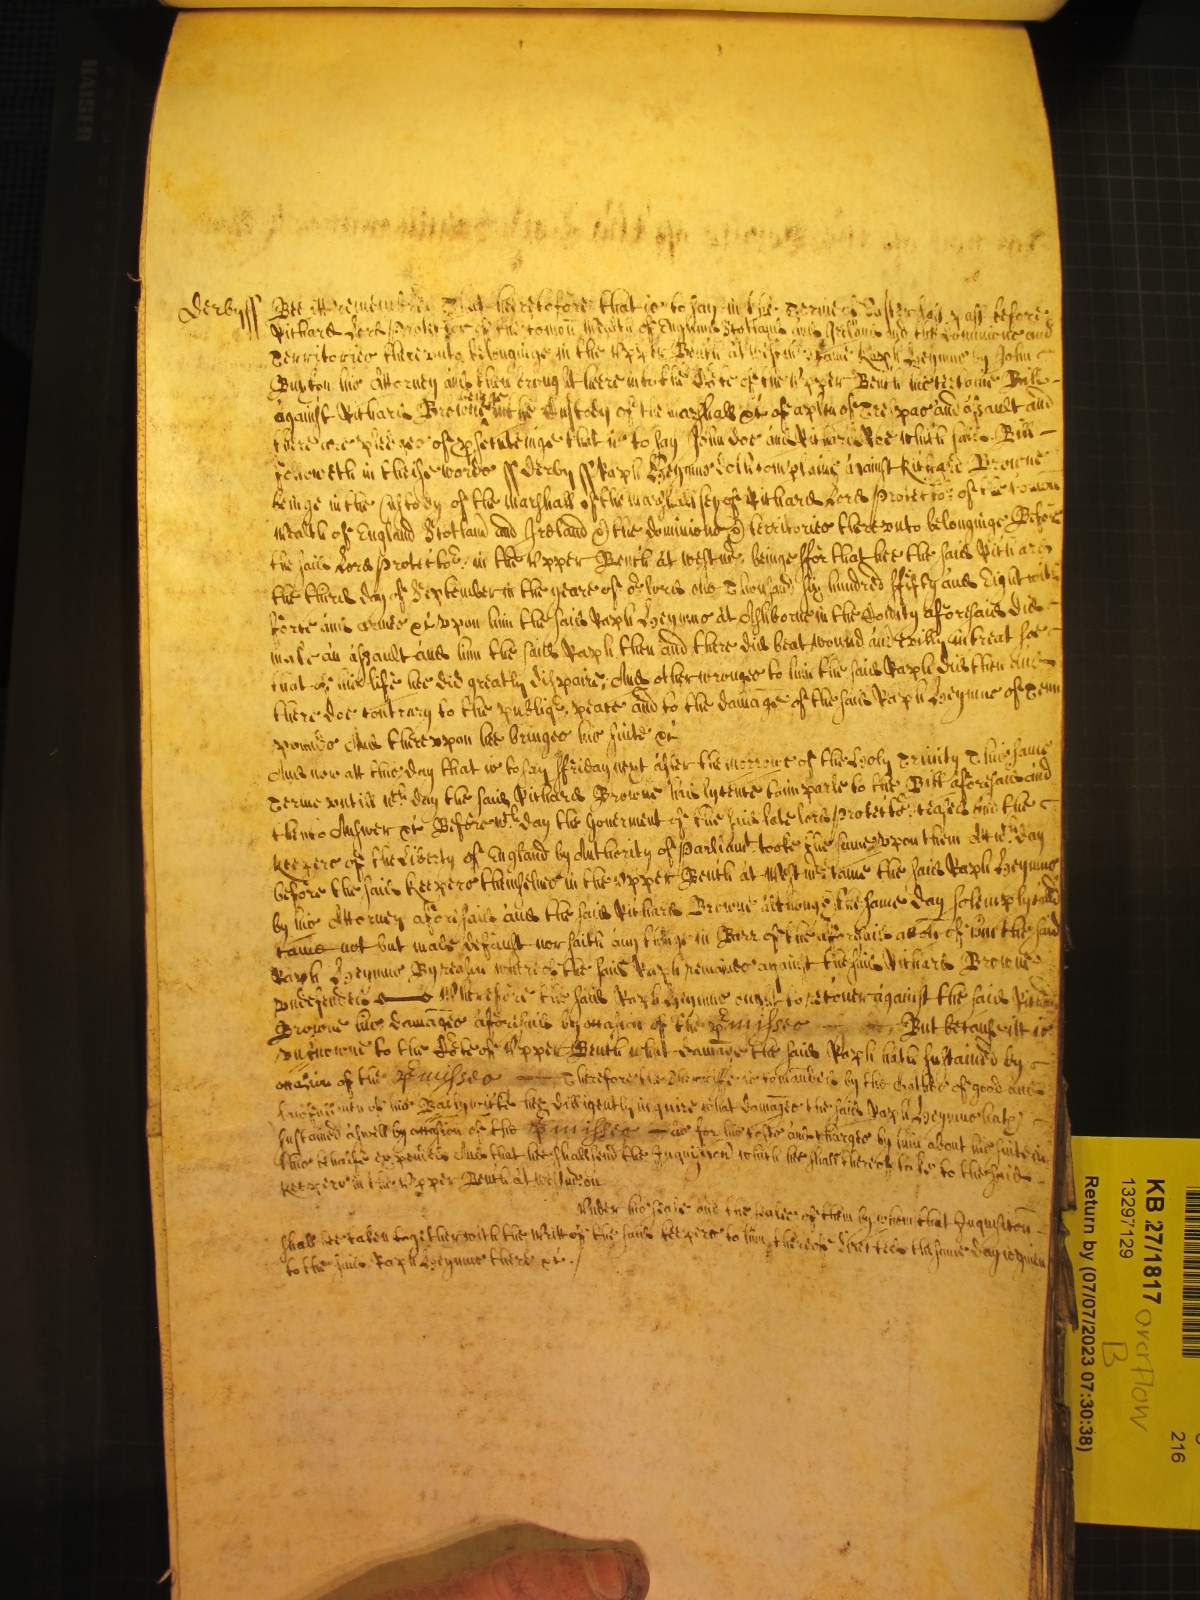 Derby ss Bee itt remembred That heretofore that is to say in the Terme of Easter last past before
Richard Lord Protector of the Comon Wealth of England Scotland and Ireland and the Dominions and
Territories thereunto belonginge in the Upper Bench att Westmr Came Raph Heynne by John
Buxton his Attorney and then brought here into the Corte of the Upper Bench his certeine Bill
against Richard Browne beinge in the Custody of the marshall &c of a plea of Trespas and assault and
there are pledges of prosecuteinge that is to say John Doe and Richard Roe which said Bill
followeth in theise words ss Derby ss Raph Heynne doth complaine against Richard Browne
beinge in the Custody of the Marshall of the Marshallsey of Richard Lord Protector of the Comon
Wealth of England Scotland and Ireland & the dominions & territories thereunto belonginge Before
the said Lord Protector in the Upper Bench at Westmr beinge ffor that hee the said Richard
the third day of September in the yeare of or Lord one Thousand six hundred ffifty and Eight with
force and armes &c upon him the said Raph Heynne at Ashborne in the County aforesaid did
make an assault and him the said Raph then and there did beat wound and evilly intreat soe
that of his life hee did greatly dispaire, And other wronges to him the said Raph did then and
there doe contrary to the publiq peace and to the damage of the said Raph Heynne of Tenn
pounds And thereupon hee bringes his suite &c
And now att this day that is to say ffriday next after the morrowe of the Holy Trinity This same
Terme untill wch day the said Richard Browne had lycence to imparle to the Bill aforesaid and
then to Answer &c Before wch day the Goverment of the said late lord Protector ceased and the
Keepers of the Liberty of England by Authority of Parliamt tooke the same upon them Att wch day
before the said Keepers themselves in the Upper Bench at Westmr came the said Raph Heynne
by his Attorney aforesaid and the said Richard Browne although the same day solemply called
came not but made default nor saith any thinge in Barr of the aforesaid accon of him the said
Raph Heynne By reason whereof the said Raph remaines against the said Richard Browne
undefended Wherefore the said Raph Heynne ought to recover against the said Richard
Browne his damages aforesaid by occasion of the premisses But because it is
unknowne to the Corte of Upper Bench what damage the said Raph hath sustained by
occasion of the premisses Therefore the Sherriffe is comanded by the Oathes of good and
lawfull men of his Baylywicke hee dilligently inquire what damages the said Raph Heynne hath
sustained aswell by occasion of the premisses as for his costs and charges by him about his suite in
this behalfe expended And that hee shall send the Inquisicon which hee shall thereof take to the said
Keepers in the Upper Bench at Westmr on
Under his seale and the seales of them by whom that Inquisicon
shall bee taken together with the Writt of the said Keepers to him thereof directed the same day is given
to the said Raph Heynne there &c
KB 27/1817
overflow
B
13297129
216
Return by (07/07/2023 07:30:38)